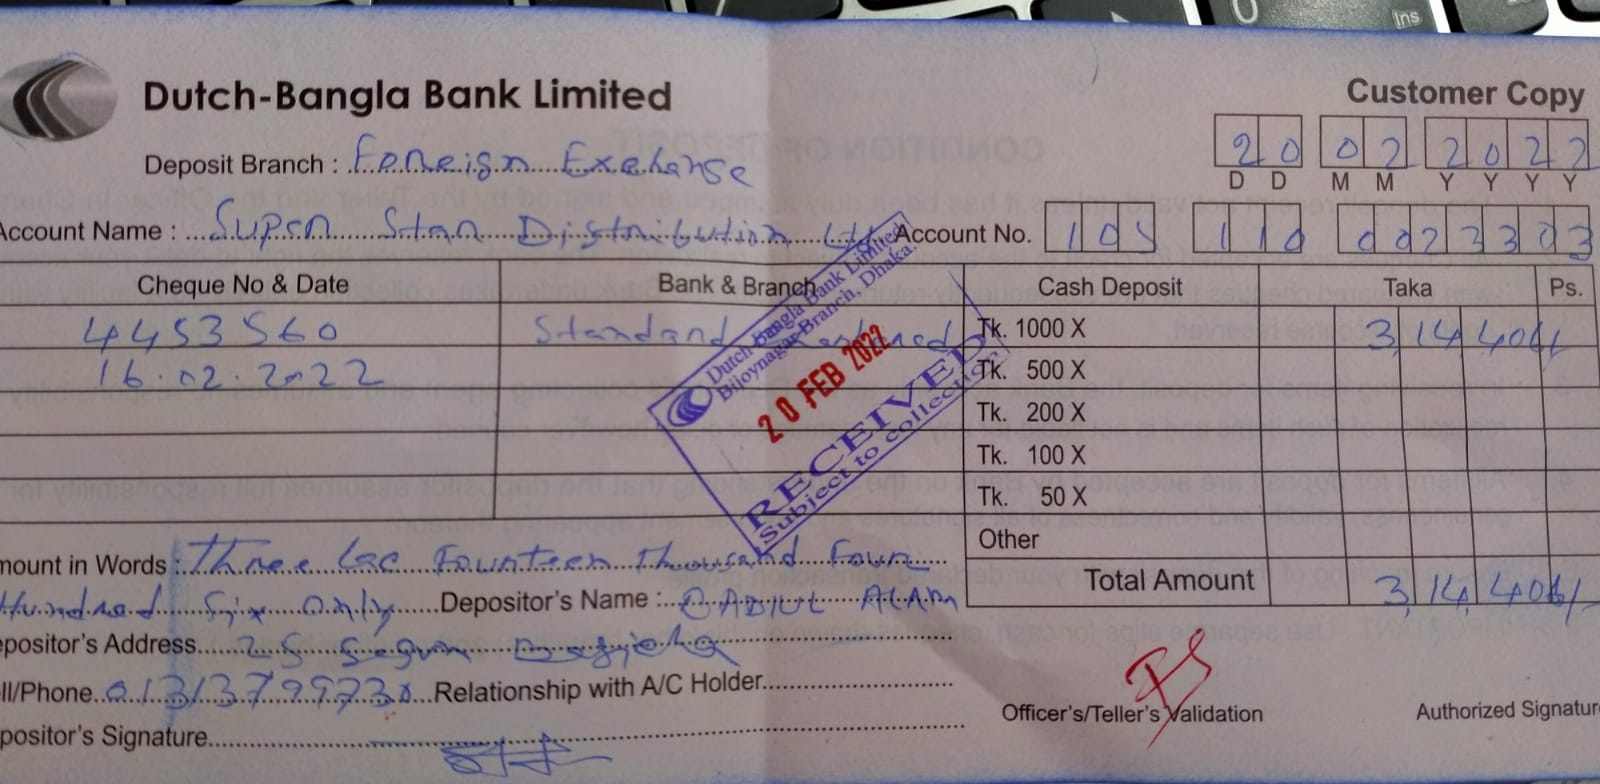 Ins
Dutch-Bangla Bank Limited
Customer Copy
Deposit Branch : Foreign Exchange
20 02 2022
D D M M Y Y Y Y
Account Name : Super Star Distribution Ltd Account No. 105 110 0023303
Cheque No & Date Bank & Branch Cash Deposit Taka Ps.
4453560 Standard Tk. 1000 X 3,14,406/
16.02.2022 Tk. 500 X
Tk. 200 X
Tk. 100 X
Tk. 50 X
Other
Dutch Bangla Bank Limited
Bijoynagar Branch, Dhaka.
20 FEB 2022
RECEIVED
Subject to collection
mount in Words : Three Lac Fourteen Thousand Four
Total Amount 3,14,406/
Hundred Six Only Depositor's Name : ALAM
epositor's Address 25 Segun
ll/Phone Relationship with A/C Holder
positor's Signature
Officer's/Teller's Validation
Authorized Signatur